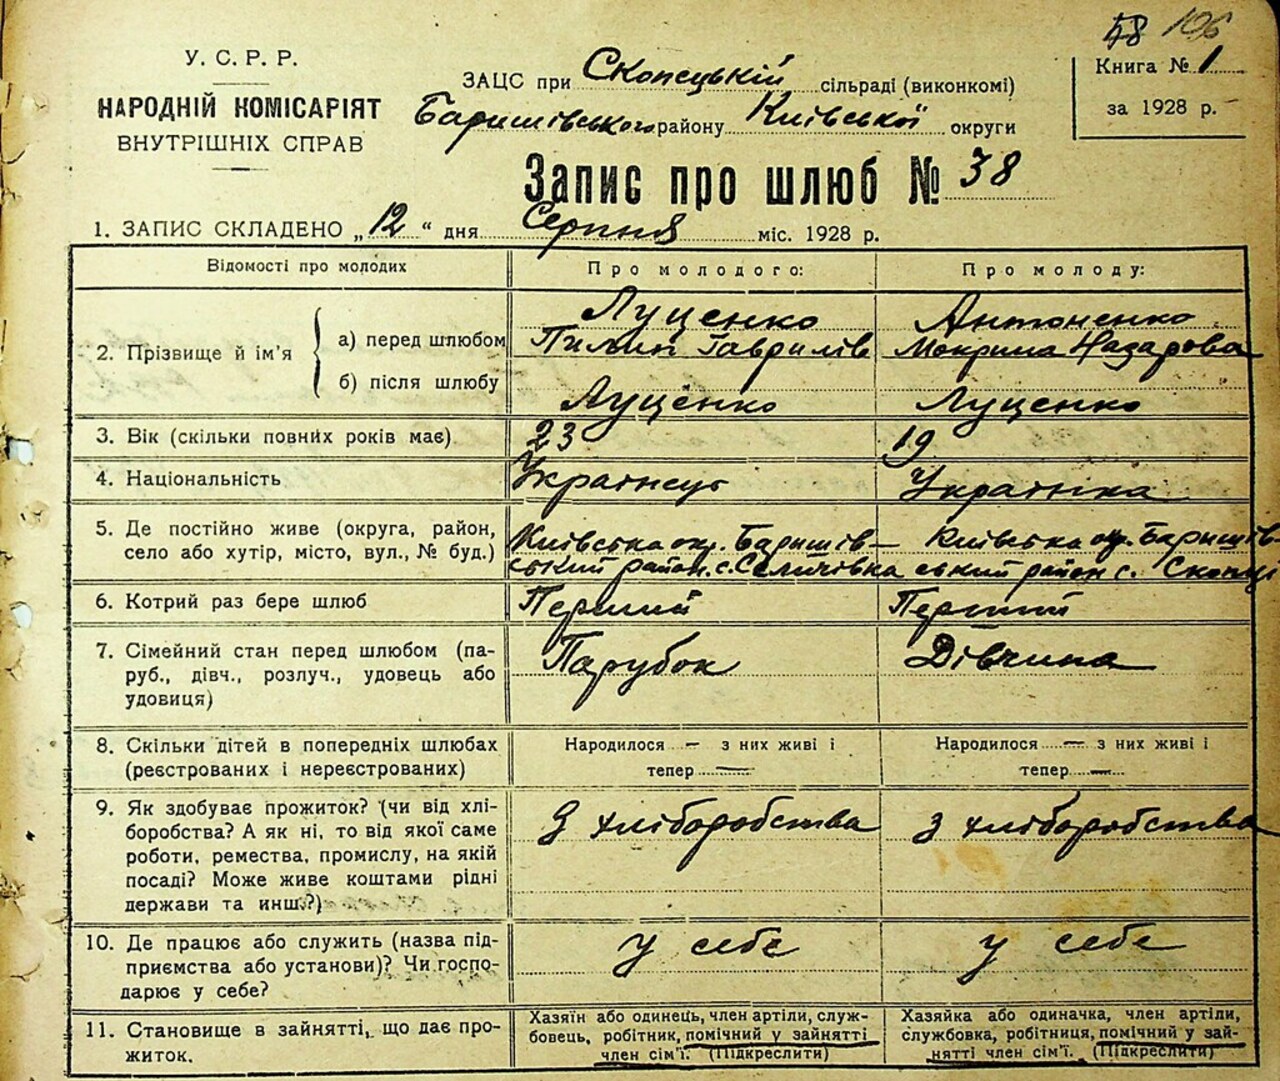 58 106
У. С. Р. Р.
НАРОДНІЙ КОМІСАРІЯТ
ВНУТРІШНІХ СПРАВ
ЗАЦС при Скопецькій сільраді (виконкомі)
Баришівського району Київської округи
Книга № 1
за 1928 р.
Запис про шлюб № 38
1. ЗАПИС СКЛАДЕНО „12“ дня Серпня міс. 1928 р.
Відомості про молодих
Про молодого:
Про молоду:
2. Прізвище й ім'я
а) перед шлюбом
Луценко
Пилип Гаврилів
Антоненко
Мокрина Назарова
б) після шлюбу
Луценко
Луценко
3. Вік (скільки повних років має)
23
19
4. Національність
Українець
Українка
5. Де постійно живе (округа, район,
село або хутір, місто, вул., № буд.)
Київська окр. Баришів-
ський район с. Селичівка
Київська окр. Баришів-
ський район с. Скопці
6. Котрий раз бере шлюб
Перший
Перший
7. Сімейний стан перед шлюбом (па-
руб., дівч., розлуч., удовець або
удовиця)
Парубок
Дівчина
8. Скільки дітей в попередніх шлюбах
(реєстрованих і нереєстрованих)
Народилося — з них живі і
тепер —
Народилося — з них живі і
тепер —
9. Як здобуває прожиток? (чи від хлі-
боробства? А як ні, то від якої саме
роботи, ремества, промислу, на якій
посаді? Може живе коштами рідні
держави та инш.?)
З хліборобства
з хліборобства
10. Де працює або служить (назва під-
приємства або установи)? Чи госпо-
дарює у себе?
у себе
у себе
11. Становище в зайнятті, що дає про-
житок.
Хазяїн або одинець, член артіли, служ-
бовець, робітник, помічний у зайнятті
член сім'ї. (Підкреслити)
Хазяйка або одиначка, член артіли,
службовка, робітниця, помічний у зай-
нятті член сім'ї. (Підкреслити)